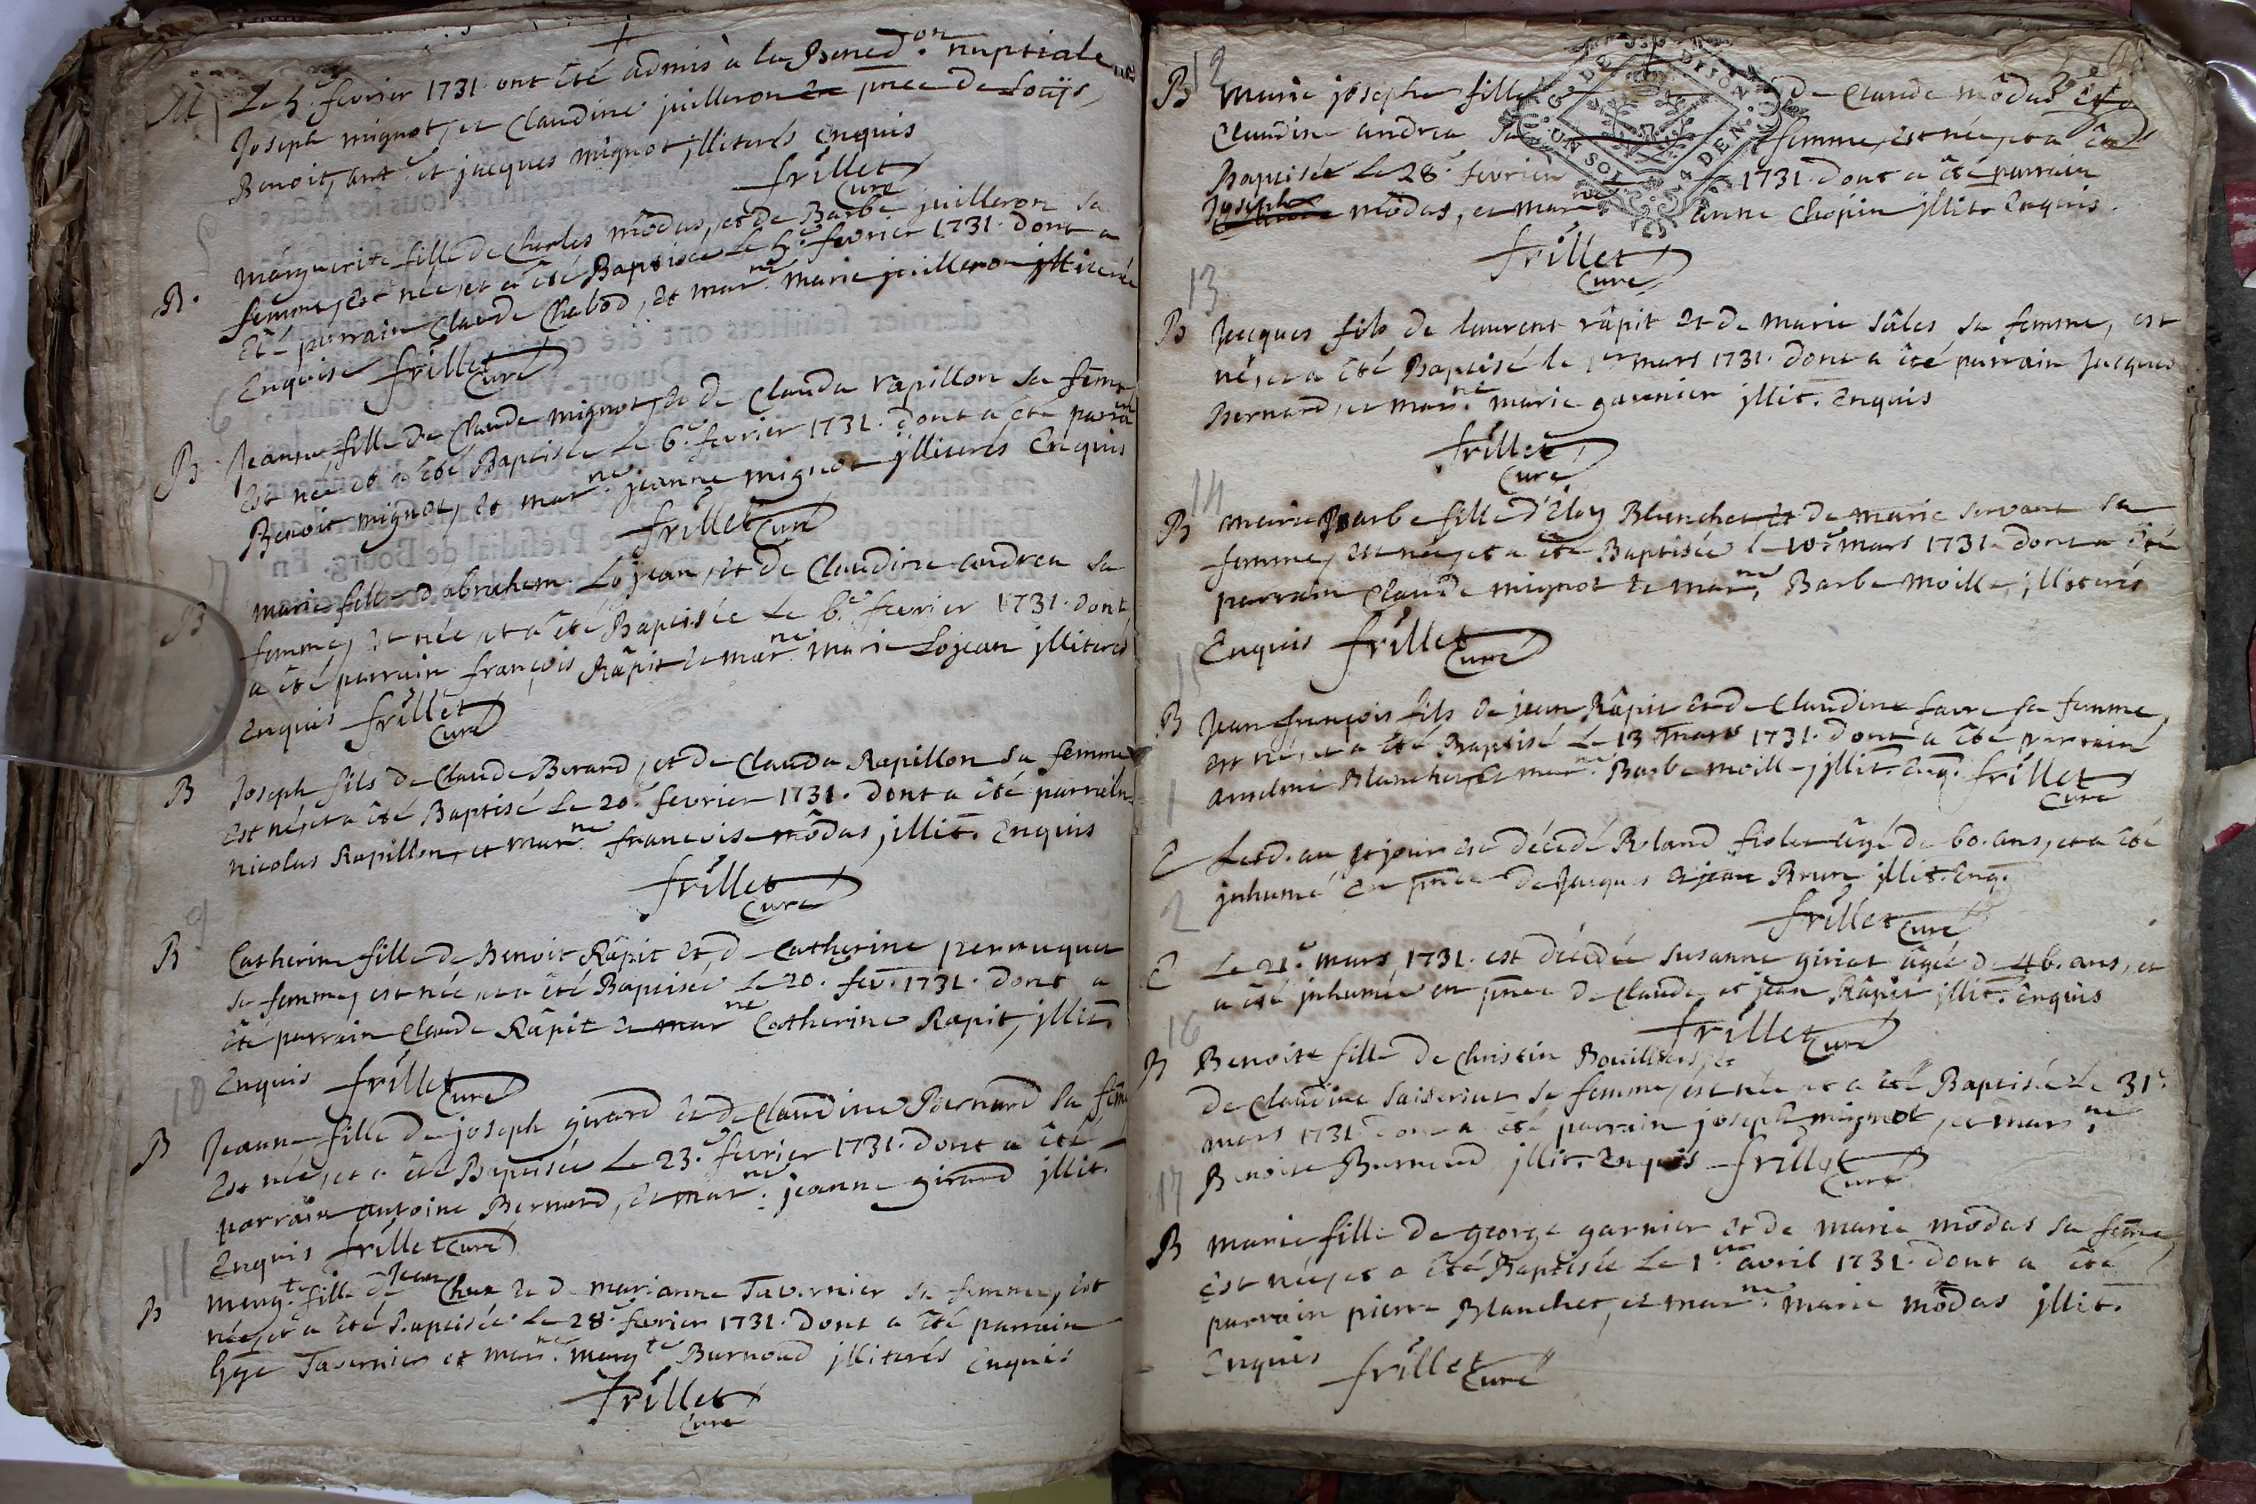 M Le 5.e fevrier 1731. ont été admis à la Bened.on nuptiale
Joseph mignot, et Claudine juilleron en pnce de Loüis,
Benoit, ant.e et jacques mignot jlliterés Enquis
frillet
Curé
B. marguerite fille de Charles môdas, et de Barbe juilleron sa
femme, Est née, et a été Baptisée le 5.e fevrier 1731. dont a
Eté parrain Claude Chabod, et mar.ne marie juilleron jlliterés
Enquis frillet
Curé
6
B Jeanne, fille de Claude mignot, et de Clauda rapillon sa feme
Est née et a été Baptisée le 6.e fevrier 1731. dont a été parain
Benoit mignot, et mar.ne jeanne mignot jlliterés Enquis
frillet Curé
7
B marie fille d'abrahem Lojean, et de Claudine andrea sa
femme, est née, et a été Baptisée Le 6.e fevrier 1731. dont
a été parrain françois Râpit et mar.ne marie Lojean jlliterés
Enquis frillet
Curé
B Joseph fils de Claude Berard, et de Clauda Rapillon sa femme
Est né, et a été Baptisé Le 20.e fevrier 1731. dont a été parrain
nicolas Rapillon, et mar.ne francoise môdas jllit. Enquis
frillet
Curé
9
B Catherine fille de Benoit Râpit et, de Catherine perruquet
sa femme, est née, et a été Baptisée Le 20. fev. 1731. dont a
été parrain Claude Râpit et mar.ne Catherine Rapit, jllit.
Enquis frillet
Curé
10
B Jeanne fille de joseph girard et de Claudine Bernard sa feme
Est née, et a été Baptisée Le 23.e fevrier 1731. dont a été
parrain antoine Bernard, et mar.ne jeanne girard jllit.
Enquis frillet Curé
11
B marg.te fille de Jean et de marianne Tavernier sa femme, est
née, et a été Baptisée Le 28.e fevrier 1731. dont a été parrain
Tavernier et mar.ne marg.te Burnoud jlliterés Enquis
frillet
Curé
12
B marie josephe fille de Claude môdas et de
Claudine andrea sa femme, est née, et a été
Baptisée Le 28.e fevrier 1731. dont a été parrain
Joseph môdas, et mar.ne anne Chopin jllit. Enquis.
frillet
Curé
13
B Jacques fils de laurent râpit et de marie sâles sa femme, est
né, et a été Baptisé le 1.er mars 1731. dont a été parrain Jacques
Bernard, et mar.ne marie garnier jllit. Enquis
frillet
Curé
14
B marie Barbe fille d'Eloy Blanchet et de marie servant sa
femme, est née, et a été Baptisée le 10.e mars 1731. dont a été
parrain Claude mignot et mar.ne Barbe moille, jlliterés
Enquis frillet
Curé
15
B Jean françois fils de jean Râpit et de Claudine favre sa femme,
est né, et a été Baptisé Le 13 mars 1731. dont a été parrain
anselme Blanchet, et mar.ne Barbe moille, jllit. Enq. frillet
Curé
1
E Lesd. an et jour est décédé Roland âgé de 60. ans, et a été
jnhumé En pnce de Jacques et jean Brun jllit. Enq.
frillet Curé
2
E Le 21.e mars, 1731. est décédée susanne giriet âgée de 46. ans, et
a été jnhumée en pnce de Claude et jean Râpit jllit. Enquis
frillet Curé
16
B Benoite fille de Christin et
de Claudine sa femme, est née et a été Baptisée Le 31.e
mars 1731. dont a été parrain joseph mignot, et mar.ne
Benoite Burnoud jllit. Enquis frillet
Curé
17
B marie fille de george garnier et de marie môdas sa feme
est née, et a été Baptisée Le 1.er avril 1731. dont a été
parrain pierre Blanchet, et mar.ne marie môdas jllit.
Enquis frillet
Curé